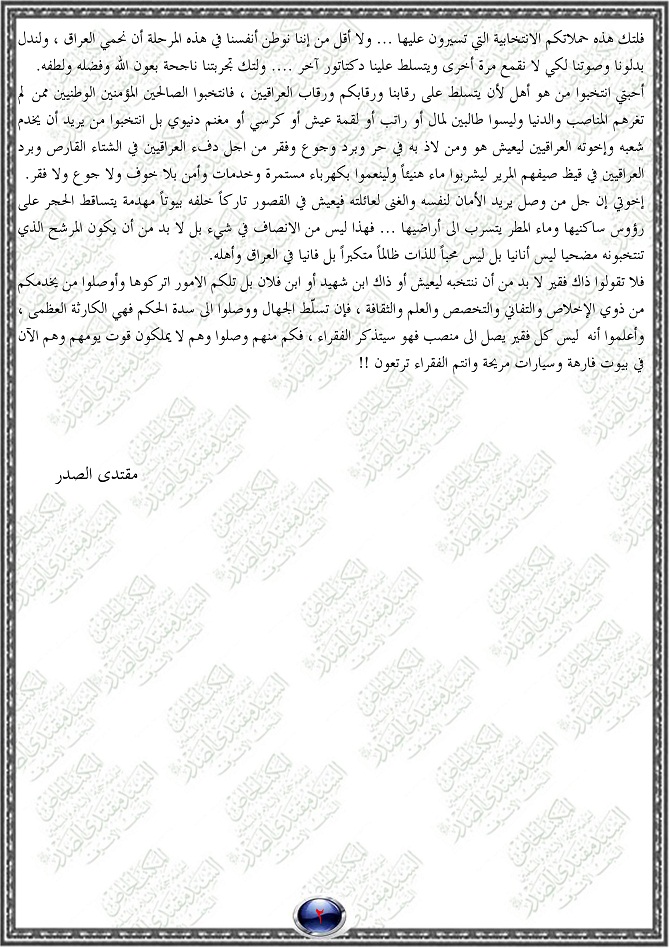 فلتك هذه حملاتكم الانتخابية التي تسيرون عليها ... ولا أقل من إننا نوطن أنفسنا في هذه المرحلة أن نحمي العراق ، ولندل
بدلونا وصوتنا لكي لا نقمع مرة أخرى ويتسلط علينا دكتاتور آخر .... ولتك تجربتنا ناجحة بعون الله وفضله ولطفه.
أحبتي انتخبوا من هو أهل لأن يتسلط على رقابنا ورقابكم ورقاب العراقيين ، فانتخبوا الصالحين المؤمنين الوطنيين ممن لم
تغرهم المناصب والدنيا وليسوا طالبين لمال أو راتب أو لقمة عيش أو كرسي أو مغنم دنيوي بل انتخبوا من يريد أن يخدم
شعبه وإخوته العراقيين ليعيش هو ومن لاذ به في حر وبرد وجوع وفقر من اجل دفء العراقيين في الشتاء القارص وبرد
العراقيين في قيظ صيفهم المرير ليشربوا ماء هنيئاً ولينعموا بكهرباء مستمرة وخدمات وأمن بلا خوف ولا جوع ولا فقر.
إخوتي إن جل من وصل يريد الأمان لنفسه والغنى لعائلته فيعيش في القصور تاركاً خلفه بيوتاً مهدمة يتساقط الحجر على
رؤوس ساكنيها وماء المطر يتسرب الى أراضيها ... فهذا ليس من الانصاف في شيء بل لا بد من أن يكون المرشح الذي
تنتخبونه مضحيا ليس أنانيا بل ليس محباً للذات ظالماً متكبراً بل فانيا في العراق وأهله.
فلا تقولوا ذاك فقير لا بد من أن ننتخبه ليعيش أو ذاك ابن شهيد أو ابن فلان بل تلكم الامور اتركوها وأوصلوا من يخدمكم
من ذوي الإخلاص والتفاني والتخصص والعلم والثقافة ، فإن تسلّط الجهال ووصلوا الى سدة الحكم فهي الكارثة العظمى ،
وأعلموا أنه ليس كل فقير يصل الى منصب فهو سيتذكر الفقراء ، فكم منهم وصلوا وهم لا يملكون قوت يومهم وهم الآن
في بيوت فارهة وسيارات مريحة وانتم الفقراء ترتعون !!
مقتدى الصدر
٢